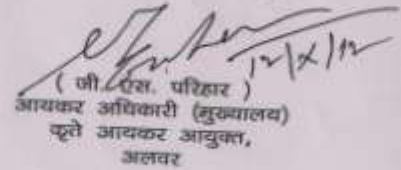 12/X/12
( जी. एस. परिहार )
आयकर अधिकारी (मुख्यालय)
कृते आयकर आयुक्त,
अलवर